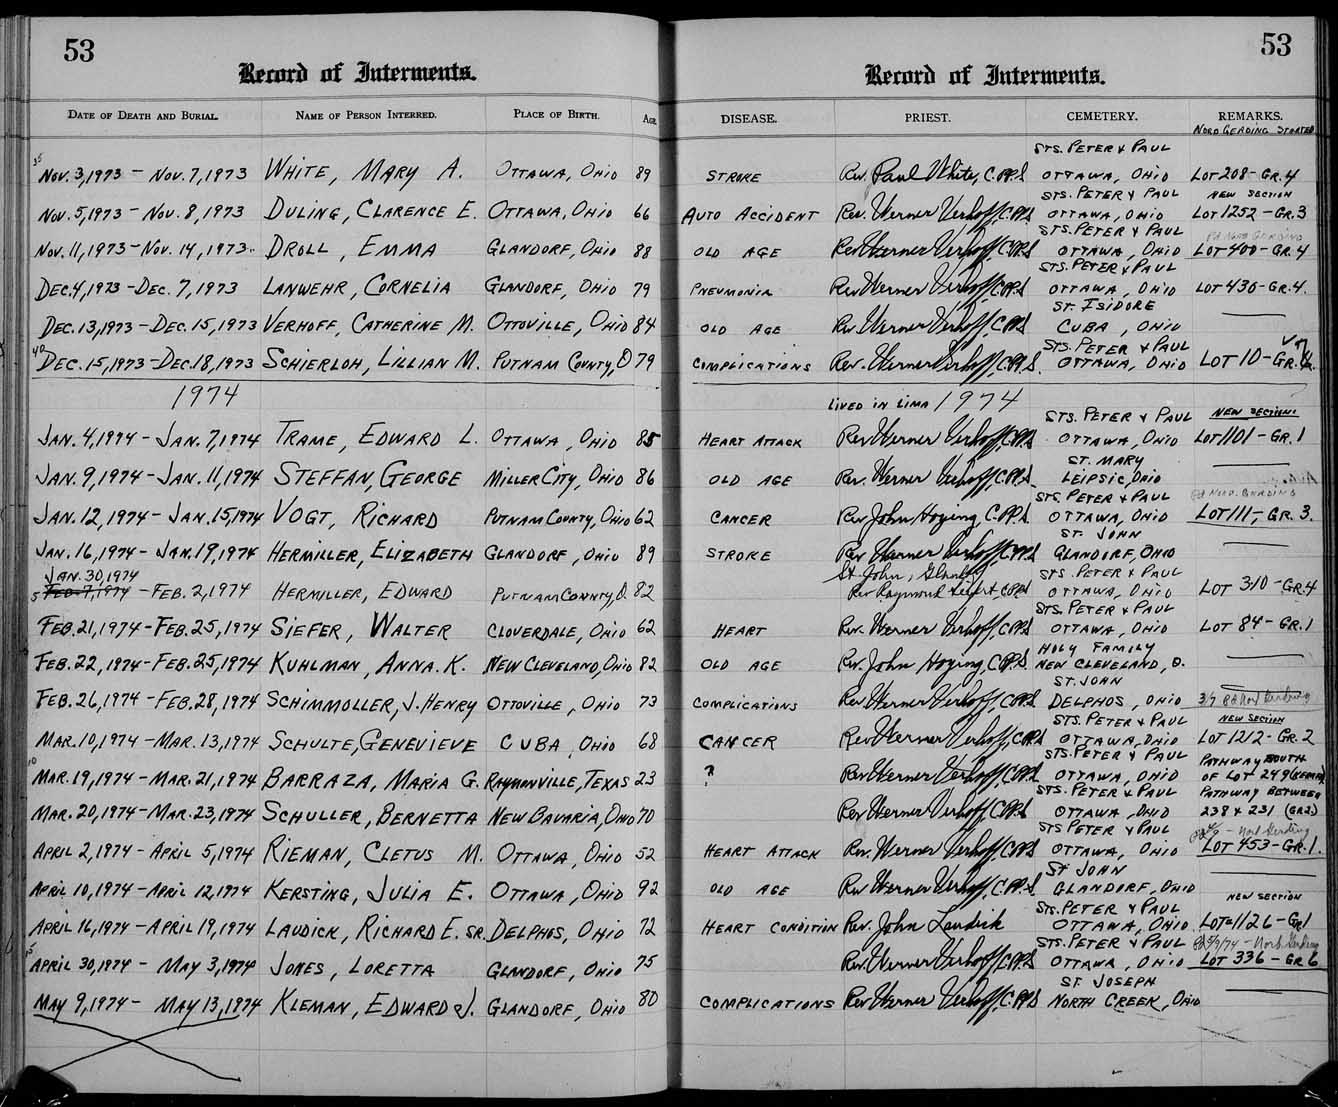 53
53
Record of Interments.
Record of Interments.
DATE OF DEATH AND BURIAL. NAME OF PERSON INTERRED. PLACE OF BIRTH. AGE. DISEASE. PRIEST. CEMETERY. REMARKS.
NORD GERDING STARTED
STS. PETER & PAUL
35
NOV. 3, 1973 - NOV. 7, 1973 WHITE, MARY A. OTTAWA, OHIO 89 STROKE Rev. Paul White, C.PP.S OTTAWA, OHIO LOT 208 - GR. 4
STS. PETER & PAUL NEW SECTION
NOV. 5, 1973 - NOV. 8, 1973 DULING, CLARENCE E. OTTAWA, OHIO 66 AUTO ACCIDENT Rev. Werner Verhoff, C.PP.S OTTAWA, OHIO LOT 1252 - GR. 3
STS. PETER & PAUL
NOV. 11, 1973 - NOV. 14, 1973 DROLL, EMMA GLANDORF, OHIO 88 OLD AGE Rev. Werner Verhoff, C.PP.S OTTAWA, OHIO LOT 400 - GR. 4
STS. PETER & PAUL
DEC. 4, 1973 - DEC. 7, 1973 LANWEHR, CORNELIA GLANDORF, OHIO 79 PNEUMONIA Rev. Werner Verhoff, C.PP.S OTTAWA, OHIO LOT 430 - GR. 4.
ST. ISIDORE
DEC. 13, 1973 - DEC. 15, 1973 VERHOFF, CATHERINE M. OTTOVILLE, OHIO 84 OLD AGE Rev. Werner Verhoff, C.PP.S CUBA, OHIO
STS. PETER & PAUL
40
DEC. 15, 1973 - DEC. 18, 1973 SCHIERLOH, LILLIAN M. PUTNAM COUNTY, O 79 COMPLICATIONS Rev. Werner Verhoff, C.PP.S. OTTAWA, OHIO LOT 10 - GR.
1974 LIVED IN LIMA 1974
STS. PETER & PAUL NEW SECTION
JAN. 4, 1974 - JAN. 7, 1974 TRAME, EDWARD L. OTTAWA, OHIO 85 HEART ATTACK Rev. Werner Verhoff, C.PP.S OTTAWA, OHIO LOT 1101 - GR. 1
ST. MARY
JAN. 9, 1974 - JAN. 11, 1974 STEFFAN, GEORGE MILLER CITY, OHIO 86 OLD AGE Rev. Werner Verhoff, C.PP.S. LEIPSIC, OHIO
STS. PETER & PAUL
JAN. 12, 1974 - JAN. 15, 1974 VOGT, RICHARD PUTNAM COUNTY, OHIO 62 CANCER Rev. John Hoying C.PP.S. OTTAWA, OHIO LOT 111 - GR. 3.
ST. JOHN
JAN. 16, 1974 - JAN. 19, 1974 HERMILLER, ELIZABETH GLANDORF, OHIO 89 STROKE Rev. Werner Verhoff, C.PP.S GLANDORF, OHIO
JAN. 30, 1974 St. John, Glandorf STS. PETER & PAUL
5 FEB. 7, 1974 - FEB. 2, 1974 HERMILLER, EDWARD PUTNAM COUNTY, O. 82 Rev. Raymond C.PP.S OTTAWA, OHIO LOT 310 - GR. 4
STS. PETER & PAUL
FEB. 21, 1974 - FEB. 25, 1974 SIEFER, WALTER CLOVERDALE, OHIO 62 HEART Rev. Werner Verhoff, C.PP.S OTTAWA, OHIO LOT 84 - GR. 1
HOLY FAMILY
FEB. 22, 1974 - FEB. 25, 1974 KUHLMAN, ANNA. K. NEW CLEVELAND, OHIO 82 OLD AGE Rev. John Hoying, C.PP.S. NEW CLEVELAND, O.
ST. JOHN
FEB. 26, 1974 - FEB. 28, 1974 SCHIMMOLLER, J. HENRY OTTOVILLE, OHIO 73 COMPLICATIONS Rev. Werner Verhoff, C.PP.S DELPHOS, OHIO
STS. PETER & PAUL NEW SECTION
MAR. 10, 1974 - MAR. 13, 1974 SCHULTE, GENEVIEVE CUBA, OHIO 68 CANCER Rev. Werner Verhoff, C.PP.S OTTAWA, OHIO LOT 1212 - GR. 2
STS. PETER & PAUL PATHWAY SOUTH
10
MAR. 19, 1974 - MAR. 21, 1974 BARRAZA, MARIA G. RAYMONVILLE, TEXAS 23 ? Rev. Werner Verhoff, C.PP.S OTTAWA, OHIO OF LOT 249
STS. PETER & PAUL PATHWAY BETWEEN
MAR. 20, 1974 - MAR. 23, 1974 SCHULLER, BERNETTA NEW BAVARIA, OHIO 70 Rev. Werner Verhoff, C.PP.S OTTAWA, OHIO 238 & 231 (GR 2.)
STS. PETER & PAUL Nord Gerding
APRIL 2, 1974 - APRIL 5, 1974 RIEMAN, CLETUS M. OTTAWA, OHIO 52 HEART ATTACK Rev. Werner Verhoff, C.PP.S OTTAWA, OHIO LOT 453 - GR. 1.
ST JOHN
APRIL 10, 1974 - APRIL 12, 1974 KERSTING, JULIA E. OTTAWA, OHIO 92 OLD AGE Rev. Werner Verhoff, C.PP.S GLANDORF, OHIO
STS. PETER & PAUL NEW SECTION
APRIL 16, 1974 - APRIL 19, 1974 LAUDICK, RICHARD E. SR. DELPHOS, OHIO 72 HEART CONDITION Rev. John Laudick OTTAWA, OHIO LOT 1126 - GR 1
STS. PETER & PAUL Nord Gerding
15
APRIL 30, 1974 - MAY 3, 1974 JONES, LORETTA GLANDORF, OHIO 75 Rev. Werner Verhoff, C.PP.S OTTAWA, OHIO LOT 336 - GR 6
ST JOSEPH
MAY 9, 1974 - MAY 13, 1974 KLEMAN, EDWARD J. GLANDORF, OHIO 80 COMPLICATIONS Rev. Werner Verhoff, C.PP.S NORTH CREEK, OHIO